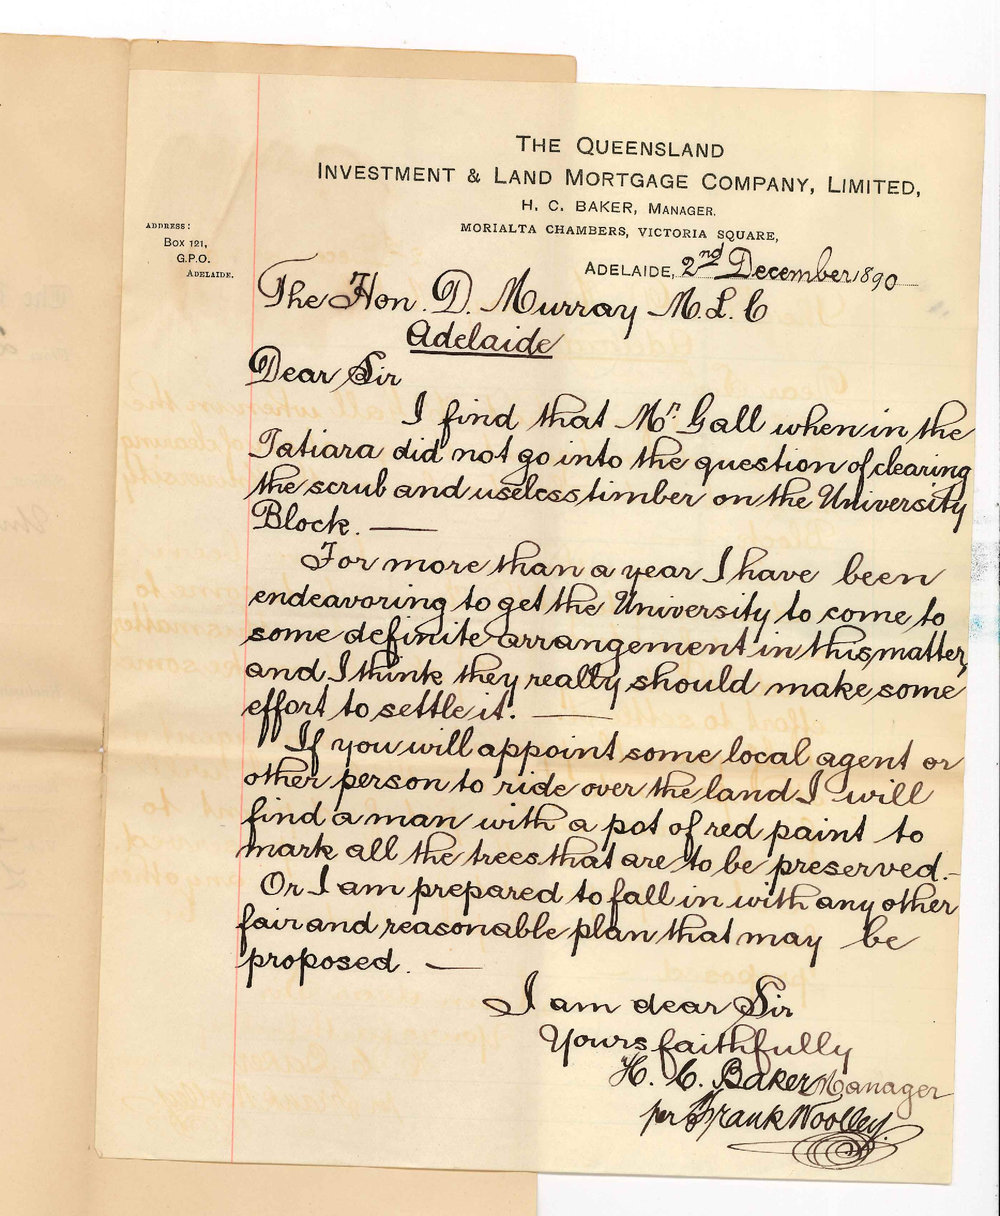 THE QUEENSLAND
INVESTMENT & LAND MORTGAGE COMPANY, LIMITED,
H. C. BAKER, MANAGER.
MORIALTA CHAMBERS, VICTORIA SQUARE,
ADDRESS:
BOX 121,
G.P.O.
ADELAIDE.
ADELAIDE, 2nd December 1890
The Hon. D. Murray M. L. C
Adelaide
Dear Sir
I find that Mr. Gall when in the
Tatiara did not go into the question of clearing
the scrub and useless timber on the University
Block. —
For more than a year I have been
endeavoring to get the University to come to
some definite arrangement in this matter,
and I think they really should make some
effort to settle it. —
If you will appoint some local agent or
other person to ride over the land I will
find a man with a pot of red paint to
mark all the trees that are to be preserved. –
Or I am prepared to fall in with any other
fair and reasonable plan that may be
proposed. —
I am dear Sir
Yours faithfully
H. C. Baker Manager
per Frank Woolley.